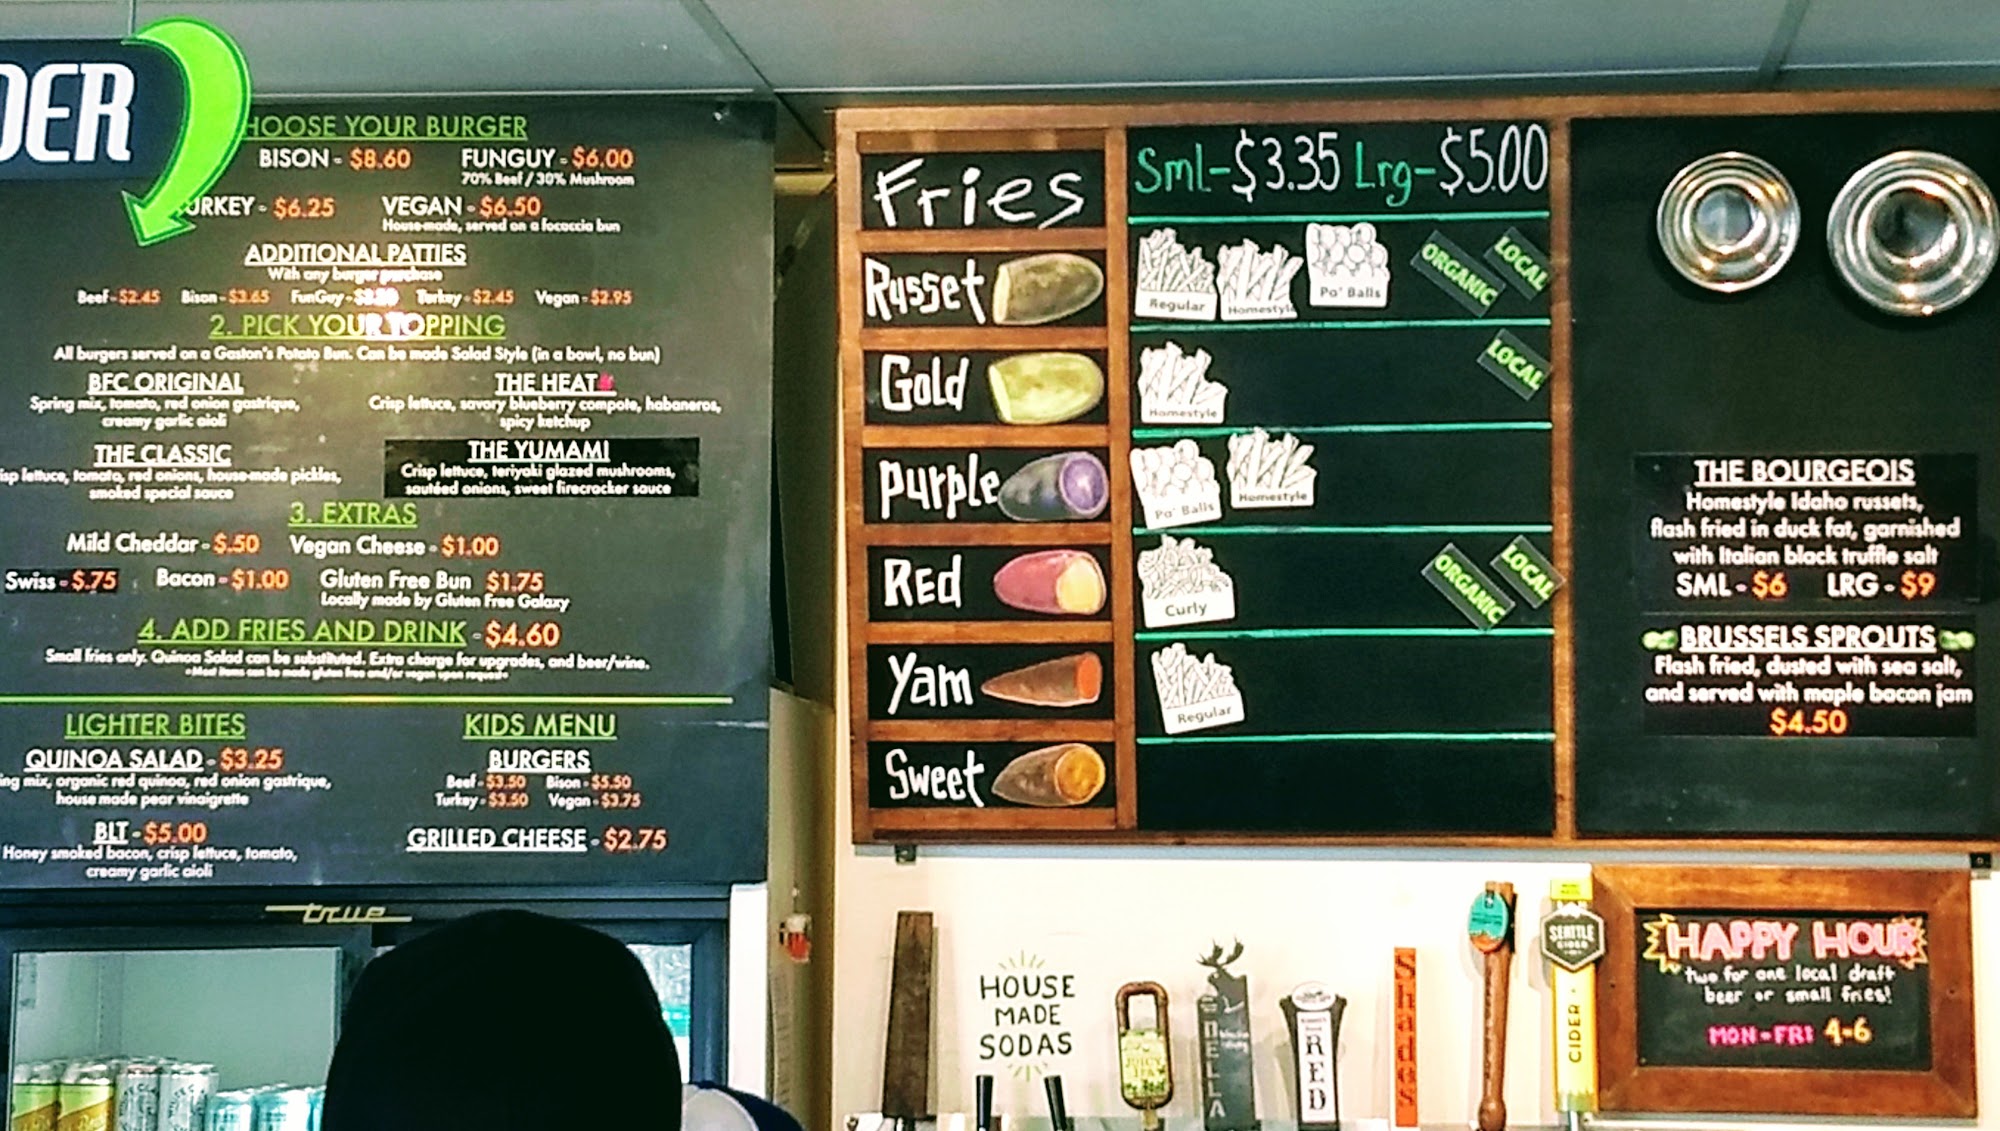 DER
HOOSE YOUR BURGER
BISON - $8.60 FUNGUY - $6.00
70% Beef / 30% Mushroom
URKEY - $6.25 VEGAN - $6.50
House-made, served on a focaccia bun
ADDITIONAL PATTIES
With any burger purchase
Beef - $2.45 Bison - $3.65 FunGuy - Turkey - $2.45 Vegan - $2.95
2. PICK YOUR TOPPING
All burgers served on a Gaston's Potato Bun. Can be made Salad Style (in a bowl, no bun)
BFC ORIGINAL
Spring mix, tomato, red onion gastrique,
creamy garlic aioli
THE HEAT
Crisp lettuce, savory blueberry compote, habaneros,
spicy ketchup
THE CLASSIC
isp lettuce, tomato, red onions, house-made pickles,
smoked special sauce
THE YUMAMI
Crisp lettuce, teriyaki glazed mushrooms,
sautéed onions, sweet firecracker sauce
3. EXTRAS
Mild Cheddar - $.50 Vegan Cheese - $1.00
Swiss - $.75 Bacon - $1.00 Gluten Free Bun $1.75
Locally made by Gluten Free Galaxy
4. ADD FRIES AND DRINK - $4.60
Small fries only. Quinoa Salad can be substituted. Extra charge for upgrades, and beer/wine.
*Most items can be made gluten free and/or vegan upon request*
LIGHTER BITES
QUINOA SALAD - $3.25
ing mix, organic red quinoa, red onion gastrique,
house made pear vinaigrette
BLT - $5.00
Honey smoked bacon, crisp lettuce, tomato,
creamy garlic aioli
KIDS MENU
BURGERS
Beef - $3.50 Bison - $5.50
Turkey - $3.50 Vegan - $3.75
GRILLED CHEESE - $2.75
true
Fries Sml-$3.35 Lrg-$5.00
Russet Regular Homestyle Po' Balls ORGANIC LOCAL
Gold Homestyle LOCAL
Purple Po' Balls Homestyle
Red Curly ORGANIC LOCAL
Yam Regular
Sweet
THE BOURGEOIS
Homestyle Idaho russets,
flash fried in duck fat, garnished
with Italian black truffle salt
SML - $6 LRG - $9
BRUSSELS SPROUTS
Flash fried, dusted with sea salt,
and served with maple bacon jam
$4.50
HOUSE
MADE
SODAS
JUICY
IPA
RED
Shades
SEATTLE
CIDER
CIDER
HAPPY HOUR
two for one local draft
beer or small fries!
MON-FRI 4-6